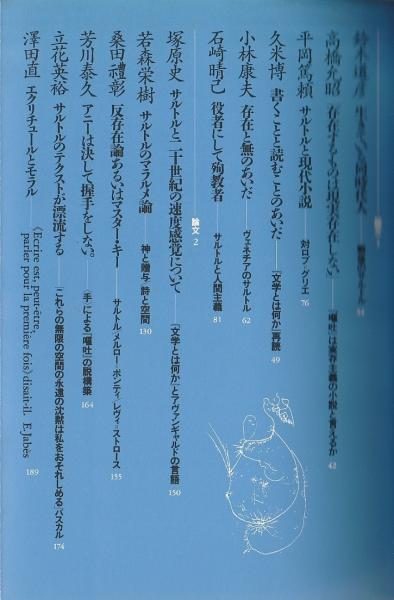 鈴木道彦 生きている同時代人 戦後のサルトル 34
高橋允昭 存在するものは現実存在しない 『嘔吐』は実存主義の小説と言えるか 42
平岡篤頼 サルトルと現代小説 対ロブ・グリエ 76
久米博 書くことと読むことのあいだ 『文学とは何か』再読 49
小林康夫 存在と無のあいだ ヴェネチアのサルトル 62
石崎晴己 役者にして殉教者 サルトルと人間主義 81
論文2
塚原史 サルトルと二十世紀の速度感覚について 『文学とは何か』とアヴァンギャルドの言語 150
若森栄樹 サルトルのマラルメ論 神と贈与/詩と空間 130
桑田禮彰 反存在論あるいはマスター・キー サルトル/メルロー=ポンティ/レヴィ=ストロース 155
芳川泰久 アニーは決して握手をしない。 〈手〉による『嘔吐』の脱構築 164
立花英裕 サルトルのテクストが漂流する 「これらの無限の空間の永遠の沈黙は私をおそれしめる」パスカル 174
澤田直 エクリチュールとモラル
《Ecrire est, peut-être,
parler pour la première fois》disait-il. E.Jabès 189